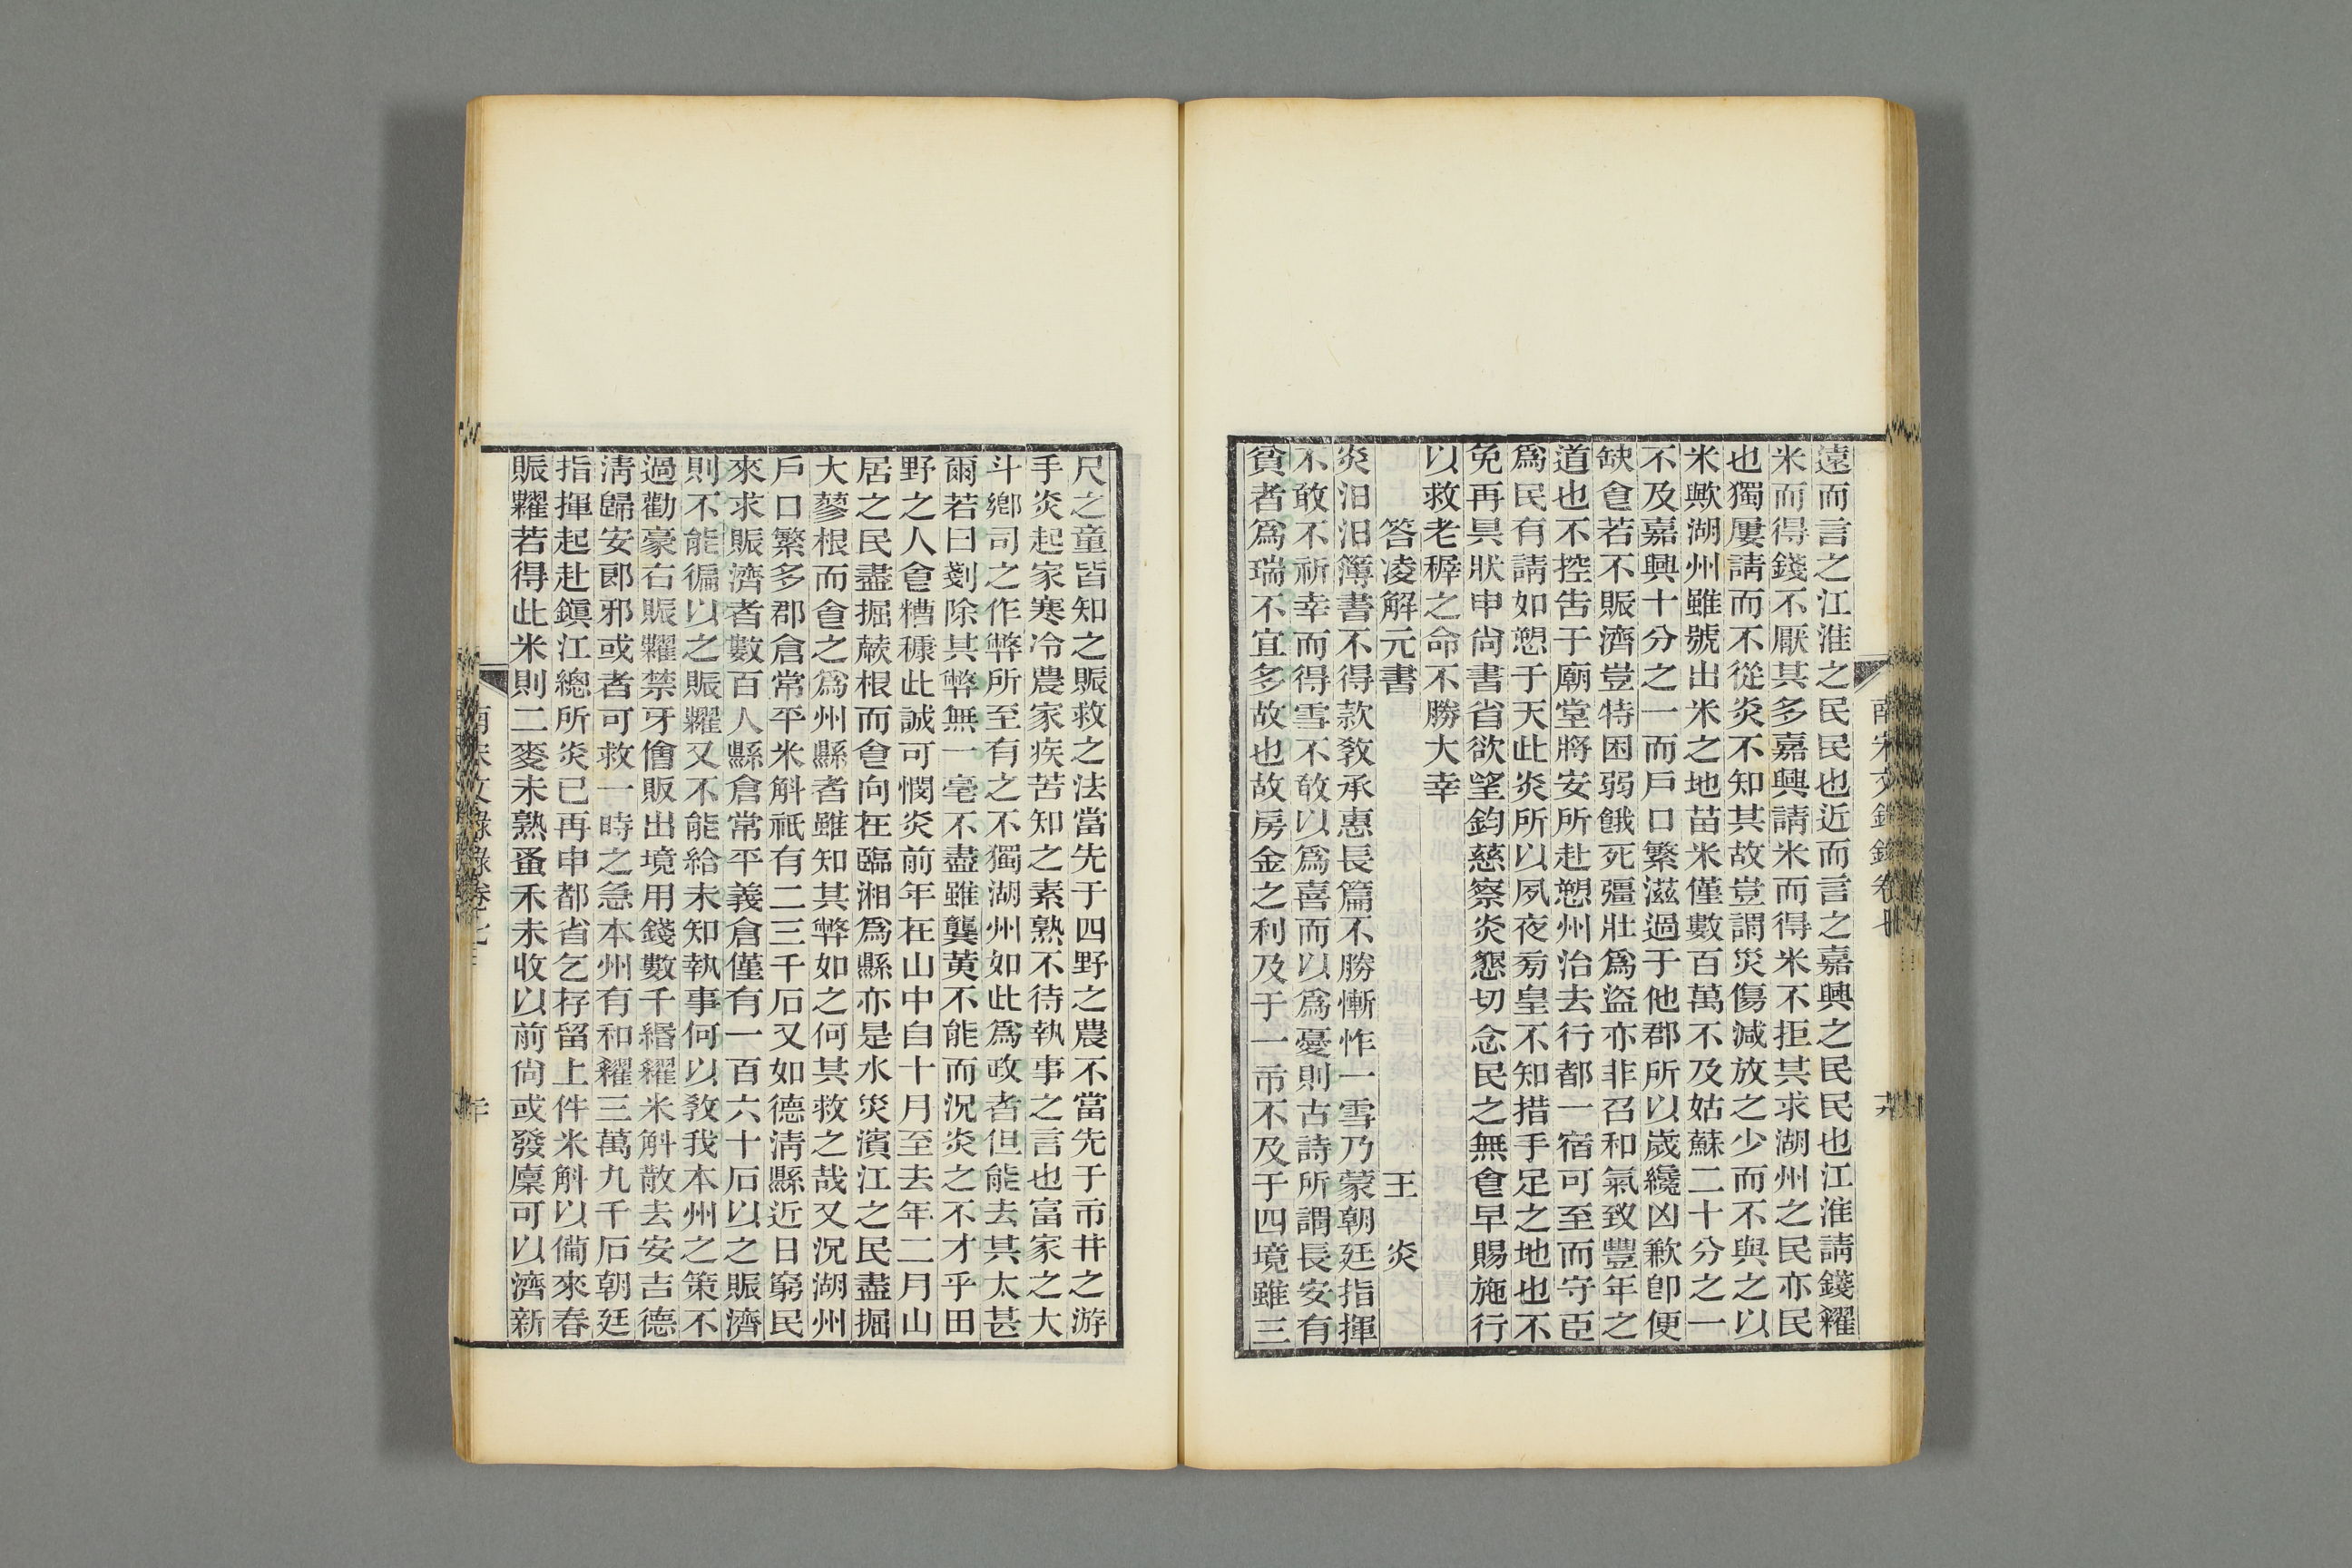 遠而言之江淮之民民也近而言之嘉興之民民也江淮請錢糴
米而得錢不厭其多嘉興請米而得米不拒其求湖州之民亦民
也獨屢請而不從炎不知其故豈謂災傷減放之少而不與之以
米歟湖州雖號出米之地苗米僅數百萬不及姑蘇二十分之一
不及嘉興十分之一而戶口繁滋過于他郡所以歲纔凶歉卽便
缺食若不賑濟豈特困弱餓死彊壯爲盜亦非召和氣致豐年之
道也不控告于廟堂將安所赴愬州治去行都一宿可至而守臣
爲民有請如愬于天此炎所以夙夜旁皇不知措手足之地也不
免再具狀申尚書省欲望鈞慈察炎懇切念民之無食早賜施行
以救老稺之命不勝大幸
答凌解元書 王炎
炎汨汨簿書不得款敎承惠長篇不勝慚怍一雪乃蒙朝廷指揮
不敢不祈幸而得雪不敢以爲喜而以爲憂則古詩所謂長安有
貧者爲瑞不宜多故也故房金之利及于一市不及于四境雖三
南宋文錄錄卷
尺之童皆知之賑救之法當先于四野之農不當先于市井之游
手炎起家寒冷農家疾苦知之素熟不待執事之言也富家之大
斗鄉司之作弊所至有之不獨湖州如此爲政者但能去其太甚
爾若曰剗除其弊無一毫不盡雖龔黃不能而況炎之不才乎田
野之人食糟穅此誠可憫炎前年在山中自十月至去年二月山
居之民盡掘蕨根而食向在臨湘爲縣亦是水災濱江之民盡掘
大蓼根而食之爲州縣者雖知其弊如之何其救之哉又況湖州
戶口繁多郡倉常平米斛祇有二三千石又如德淸縣近日窮民
來求賑濟者數百人縣倉常平義倉僅有一百六十石以之賑濟
則不能徧以之賑糶又不能給未知執事何以敎我本州之策不
過勸豪右賑糶禁牙儈販出境用錢數千緡糴米斛散去安吉德
淸歸安郎邪或者可救一時之急本州有和糴三萬九千石朝廷
指揮起赴鎭江總所炎已再申都省乞存留上件米斛以備來春
賑糶若得此米則二麥未熟蚤禾未收以前尙或發廩可以濟新
南宋文錄錄卷